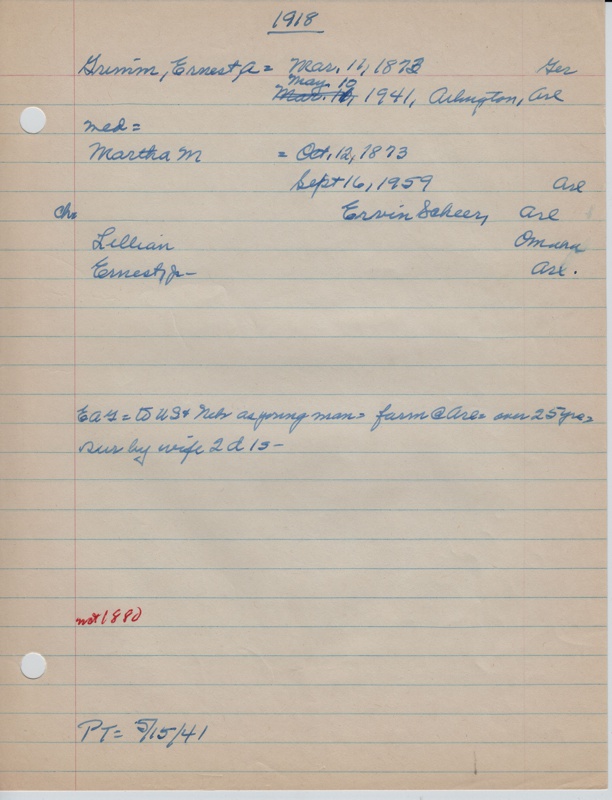 1918
Grimm, Ernest A = Mar. 11, 1873 Ger
May 10
Mar. 11, 1941, Arlington, Arl
med =
Martha M = Oct. 12, 1873
Sept 16, 1959 Arl
ch= Ervin Scheer, Arl
Lillian Omaha
Ernest, Jr — Arl.
EAG = to US & Nebr as young man = farm @ Arl = over 25 yrs =
sur by wife 2 d 1 s —
not 1880
PT = 5/15/41